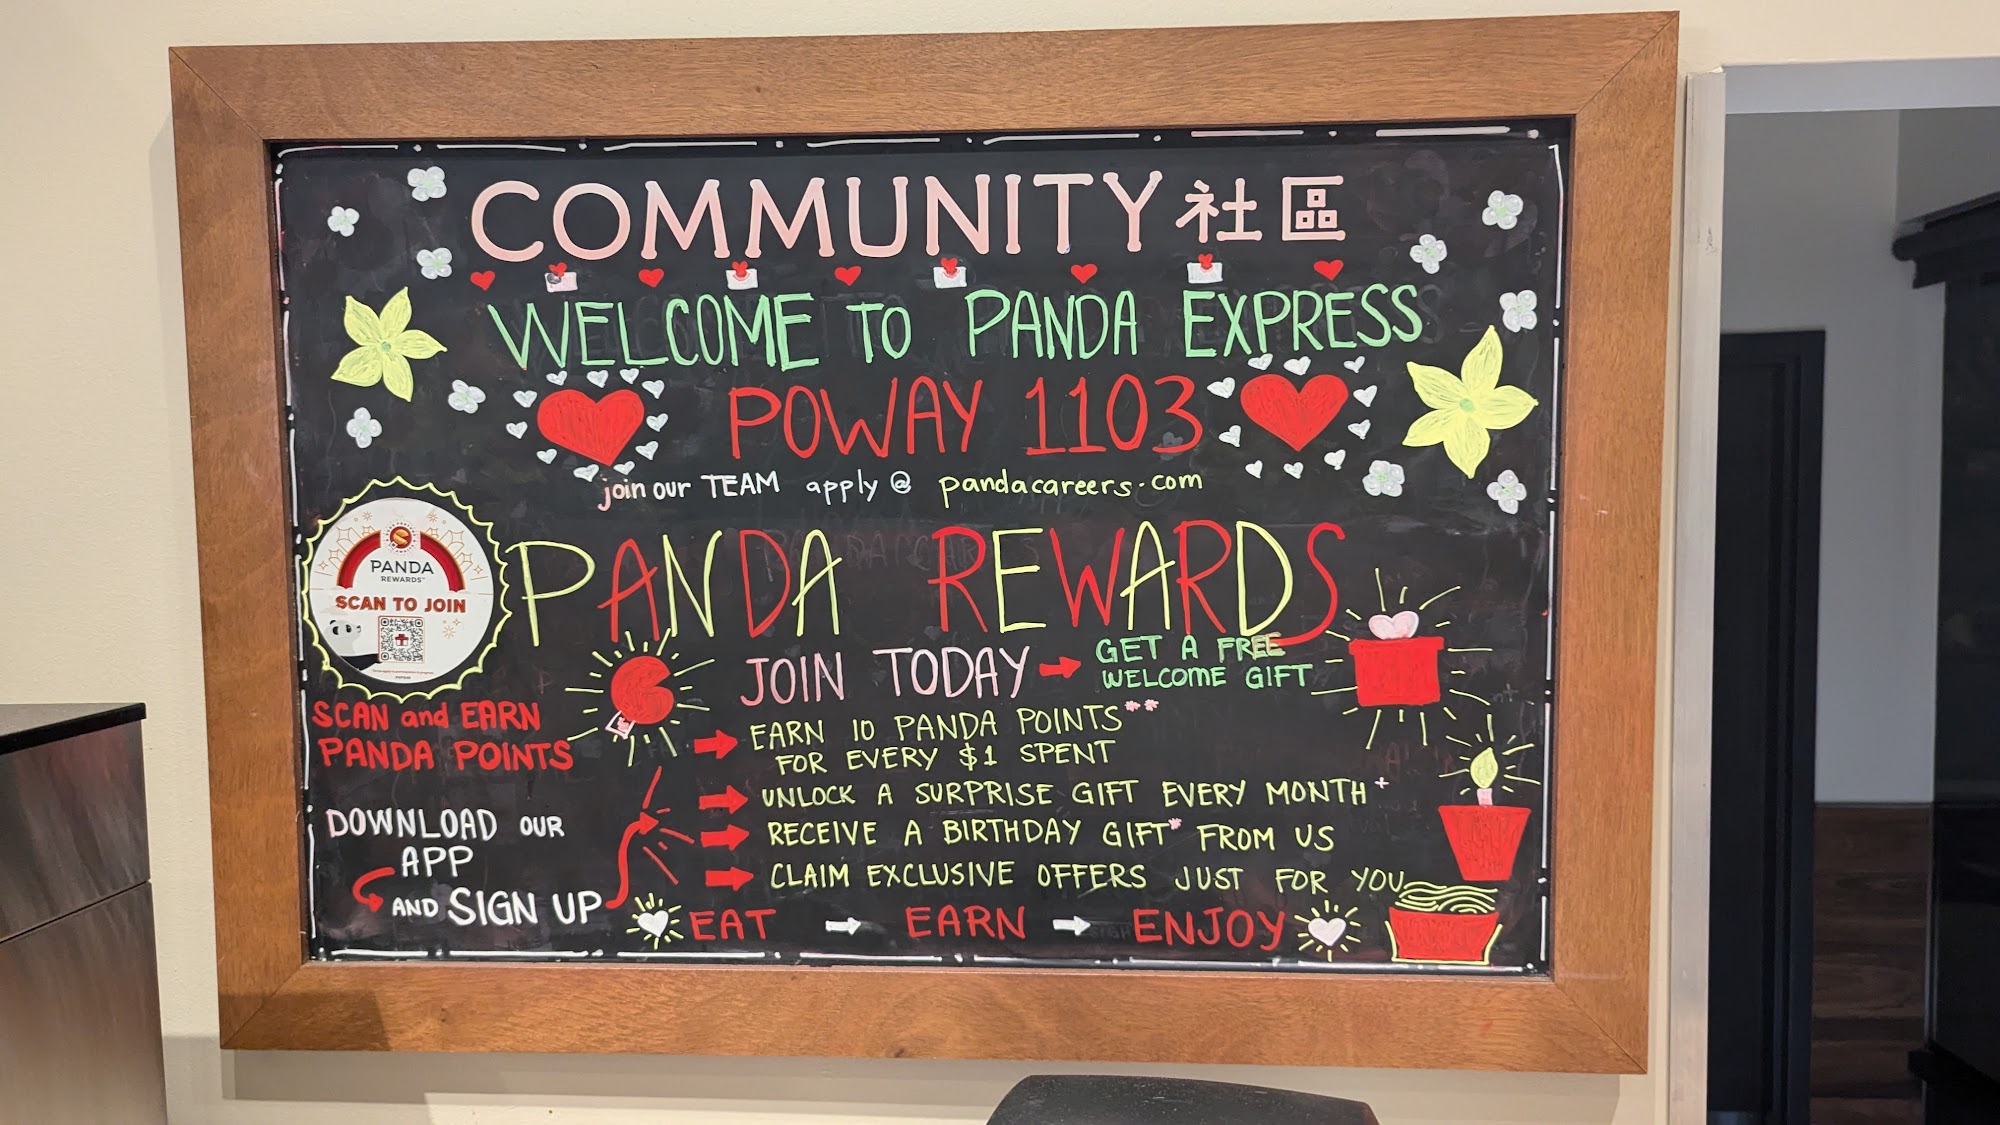 COMMUNITY 社區
WELCOME TO PANDA EXPRESS
POWAY 1103
join our TEAM apply @ pandacareers.com
PANDA
REWARDS™
SCAN TO JOIN
SCAN and EARN
PANDA POINTS
DOWNLOAD OUR
APP
AND SIGN UP
PANDA REWARDS
JOIN TODAY
GET A FREE
WELCOME GIFT
EARN 10 PANDA POINTS**
FOR EVERY $1 SPENT
UNLOCK A SURPRISE GIFT EVERY MONTH+
RECEIVE A BIRTHDAY GIFT* FROM US
CLAIM EXCLUSIVE OFFERS JUST FOR YOU
EAT → EARN → ENJOY